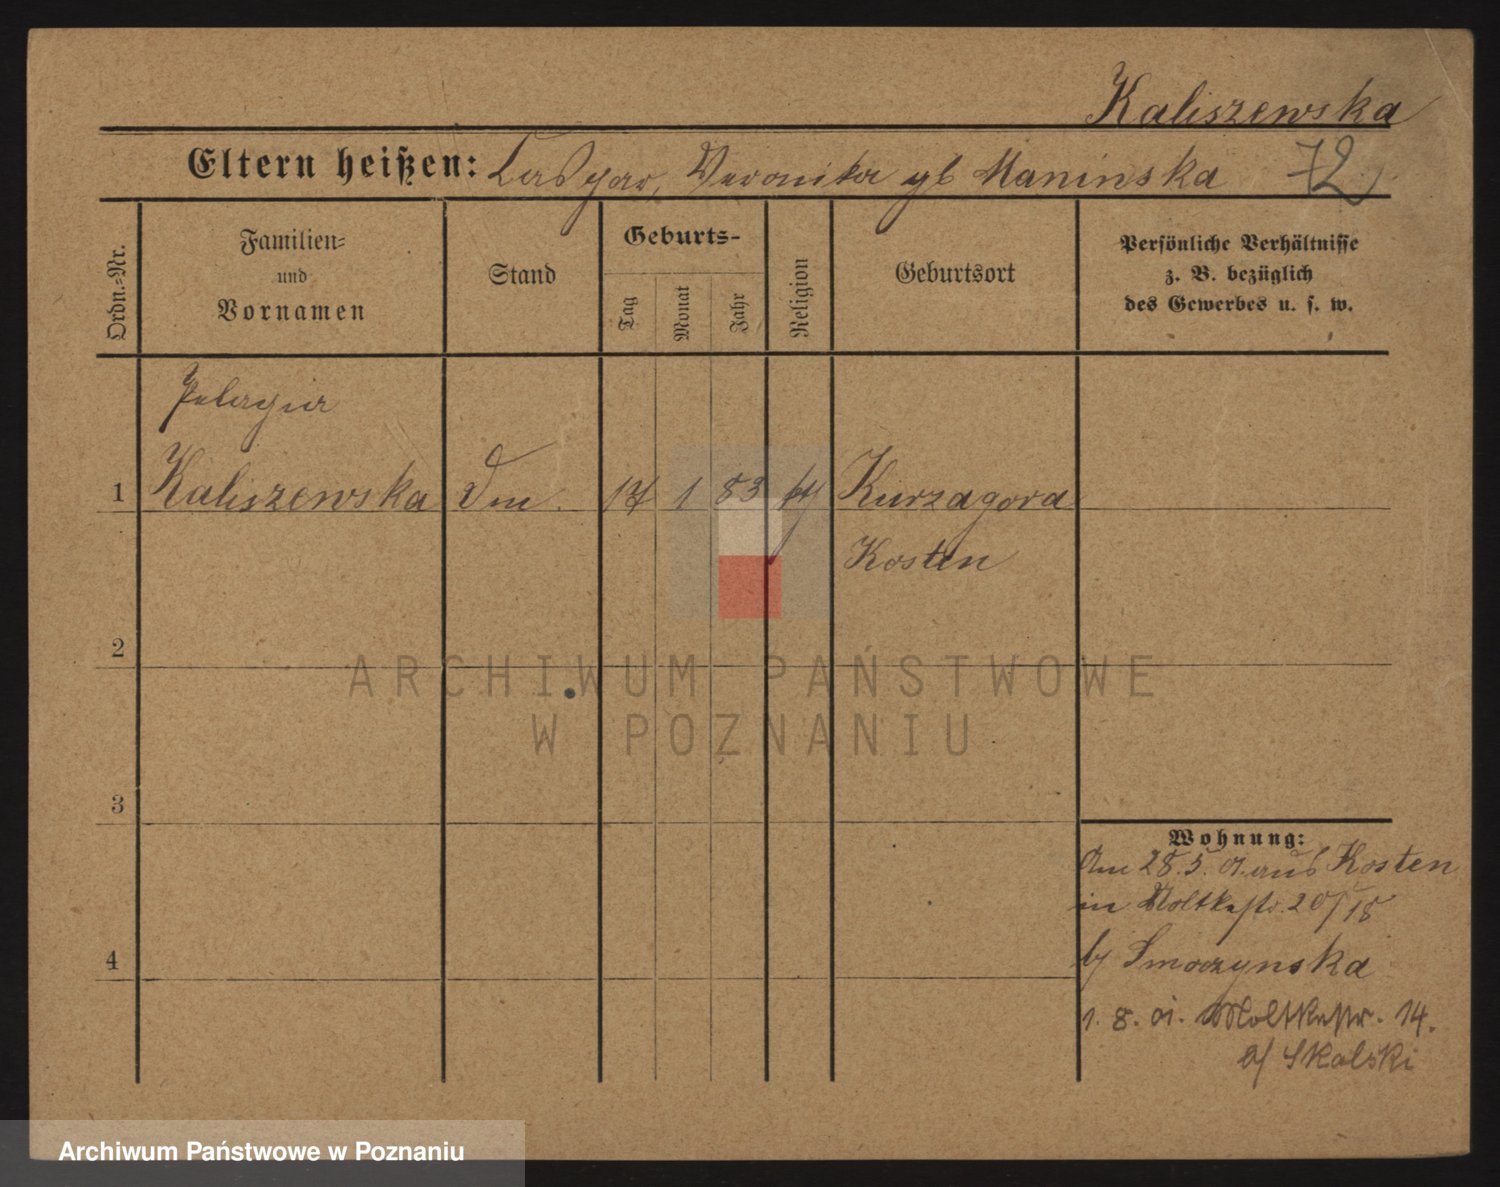 Kaliszewska
Eltern heißen: Kaspar, Veronika gb Maninska 72
Ordn.-Nr.
Familien-
und
Vornamen
Stand
Geburts-
Tag
Monat
Jahr
Religion
Geburtsort
Persönliche Verhältnisse
z. B. bezüglich
des Gewerbes u. s. w.
Pelagia
1 Kaliszewska 17 1 83 Kurzagora
Kosten
2
ARCHIWUM PAŃSTWOWE
W POZNANIU
3
Wohnung:
Am 28.5. aus Kosten
in Moltkestr. 20/18
b/ Smoczynska
4
1. 8. 01. Moltkestr. 14.
b/ Skalski
Archiwum Państwowe w Poznaniu